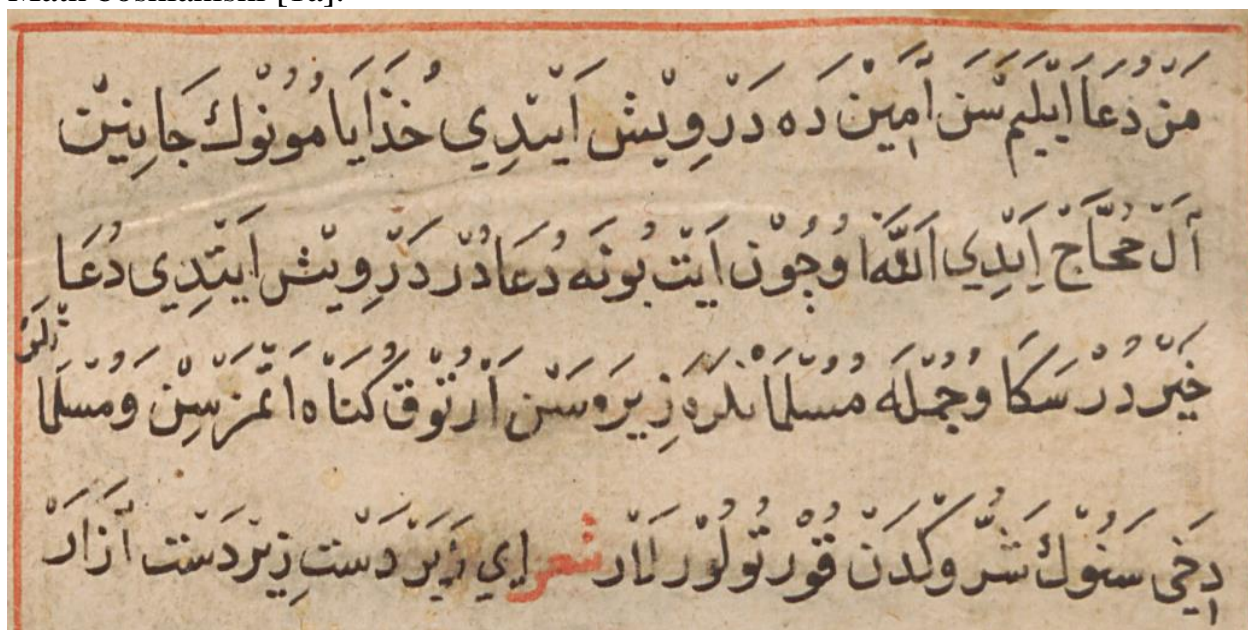 Matn boshlanishi [1a]:
مَنْ دُعَا اَيْلَيِمْ سَنْ اٰمِينْ دَه دَرْوِيْشْ اَيْتْدِي خُذَايَا مُونُوكْ جَانِينْ
اَلْ حُجَّاجْ اَيْدِي اَللّٰهْ اُوچُونْ اَيْتْ بُونَه دُعَادُرْ دَرْوِيْشْ اَيْتْدِي دُعَا
خَيْرْ دُرْ سَكَا وَجُمْلَه مُسُلْمَانْلَرَه زِيرَه سَنْ اَرْتُوقْ كُنَاه اَتْمَزْسِنْ وَمُسُلْمَانْلَرْ
دَخِي سَنُوكْ شَرُّوكْدَنْ قُورْتُولُورْلَارْ شعر اي زَبَرْ دَسْتِ زِيرْ دَسْت آزَارْ